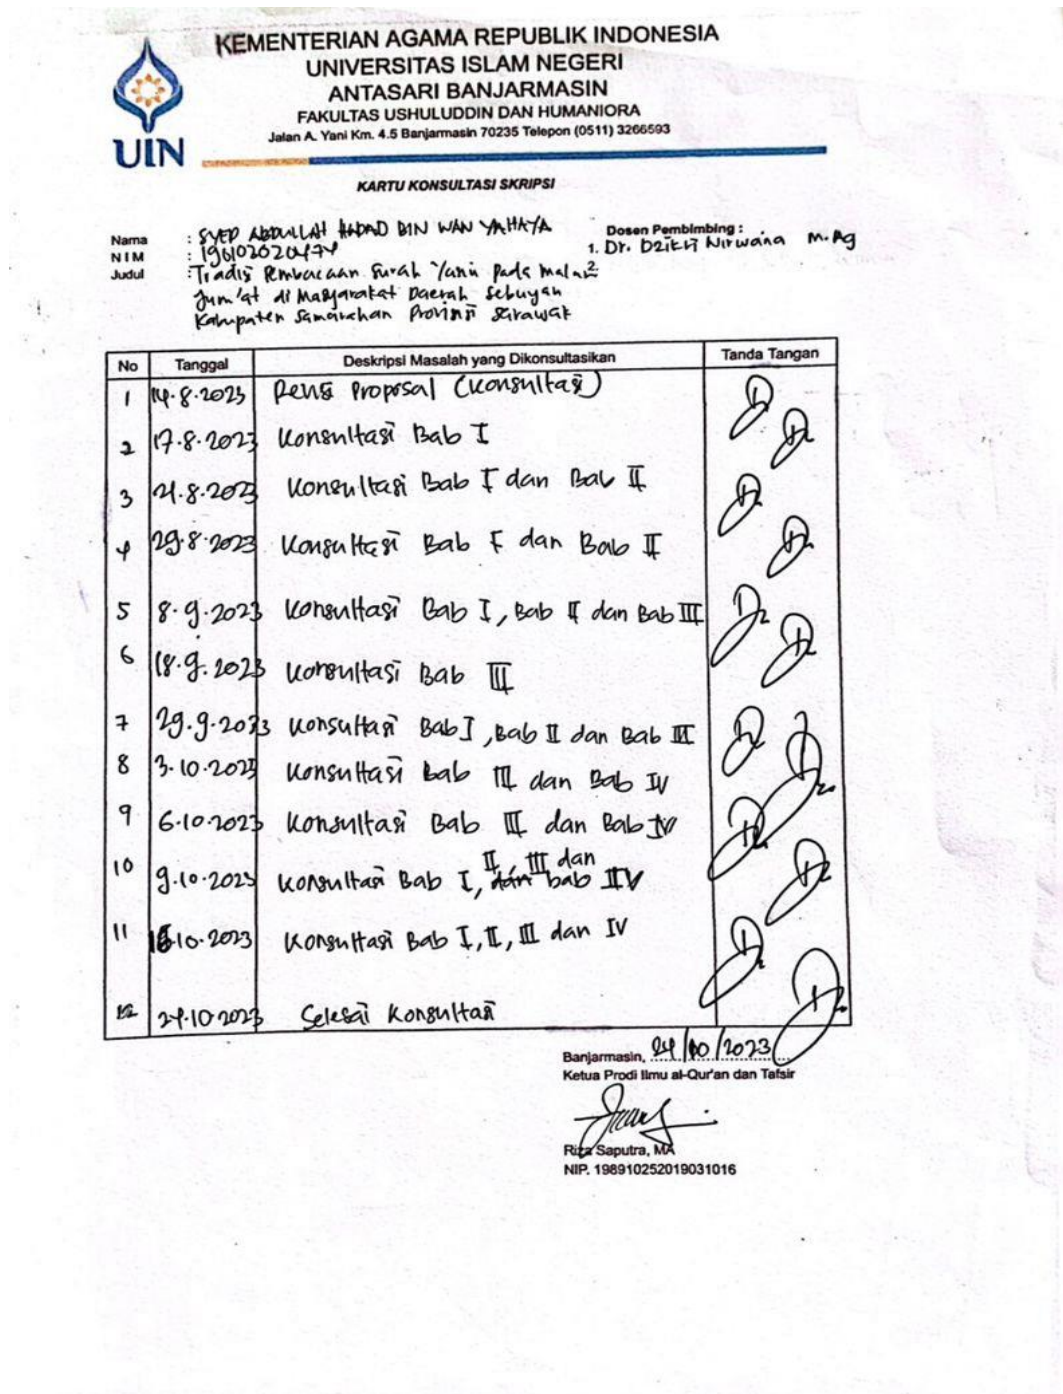 KEMENTERIAN AGAMA REPUBLIK INDONESIA
UNIVERSITAS ISLAM NEGERI
ANTASARI BANJARMASIN
FAKULTAS USHULUDDIN DAN HUMANIORA
Jalan A. Yani Km. 4.5 Banjarmasin 70235 Telepon (0511) 3266593
UIN
KARTU KONSULTASI SKRIPSI
Nama : SYED ABDULLAH HADAD BIN WAN YAHAYA
Dosen Pembimbing :
NIM :
1. Dr. Dzikri Nirwana M.Ag
Judul : Tradisi Pembacaan Surah Yasin pada malam
2.
Jum'at di Masyarakat Daerah Sebuyau
Kabupaten Samarahan Provinsi Sarawak
No Tanggal Deskripsi Masalah yang Dikonsultasikan Tanda Tangan
1 14.8.2023 Revisi Proposal (Konsultasi)
2 17.8.2023 Konsultasi Bab I
3 21.8.2023 Konsultasi Bab I dan Bab II
4 29.8.2023 Konsultasi Bab I dan Bab II
5 8.9.2023 Konsultasi Bab I, Bab II dan Bab III
6 18.9.2023 Konsultasi Bab III
7 29.9.2023 Konsultasi Bab I, Bab II dan Bab III
8 3.10.2023 Konsultasi Bab III dan Bab IV
9 6.10.2023 Konsultasi Bab III dan Bab IV
II, III dan
10 9.10.2023 Konsultasi Bab I, dan bab IV
11 Konsultasi Bab I, II, III dan IV
12 24.10.2023 Selesai Konsultasi
Banjarmasin, 24/10/2023
Ketua Prodi Ilmu al-Qur'an dan Tafsir
Riza Saputra, MA
NIP. 198910252019031016